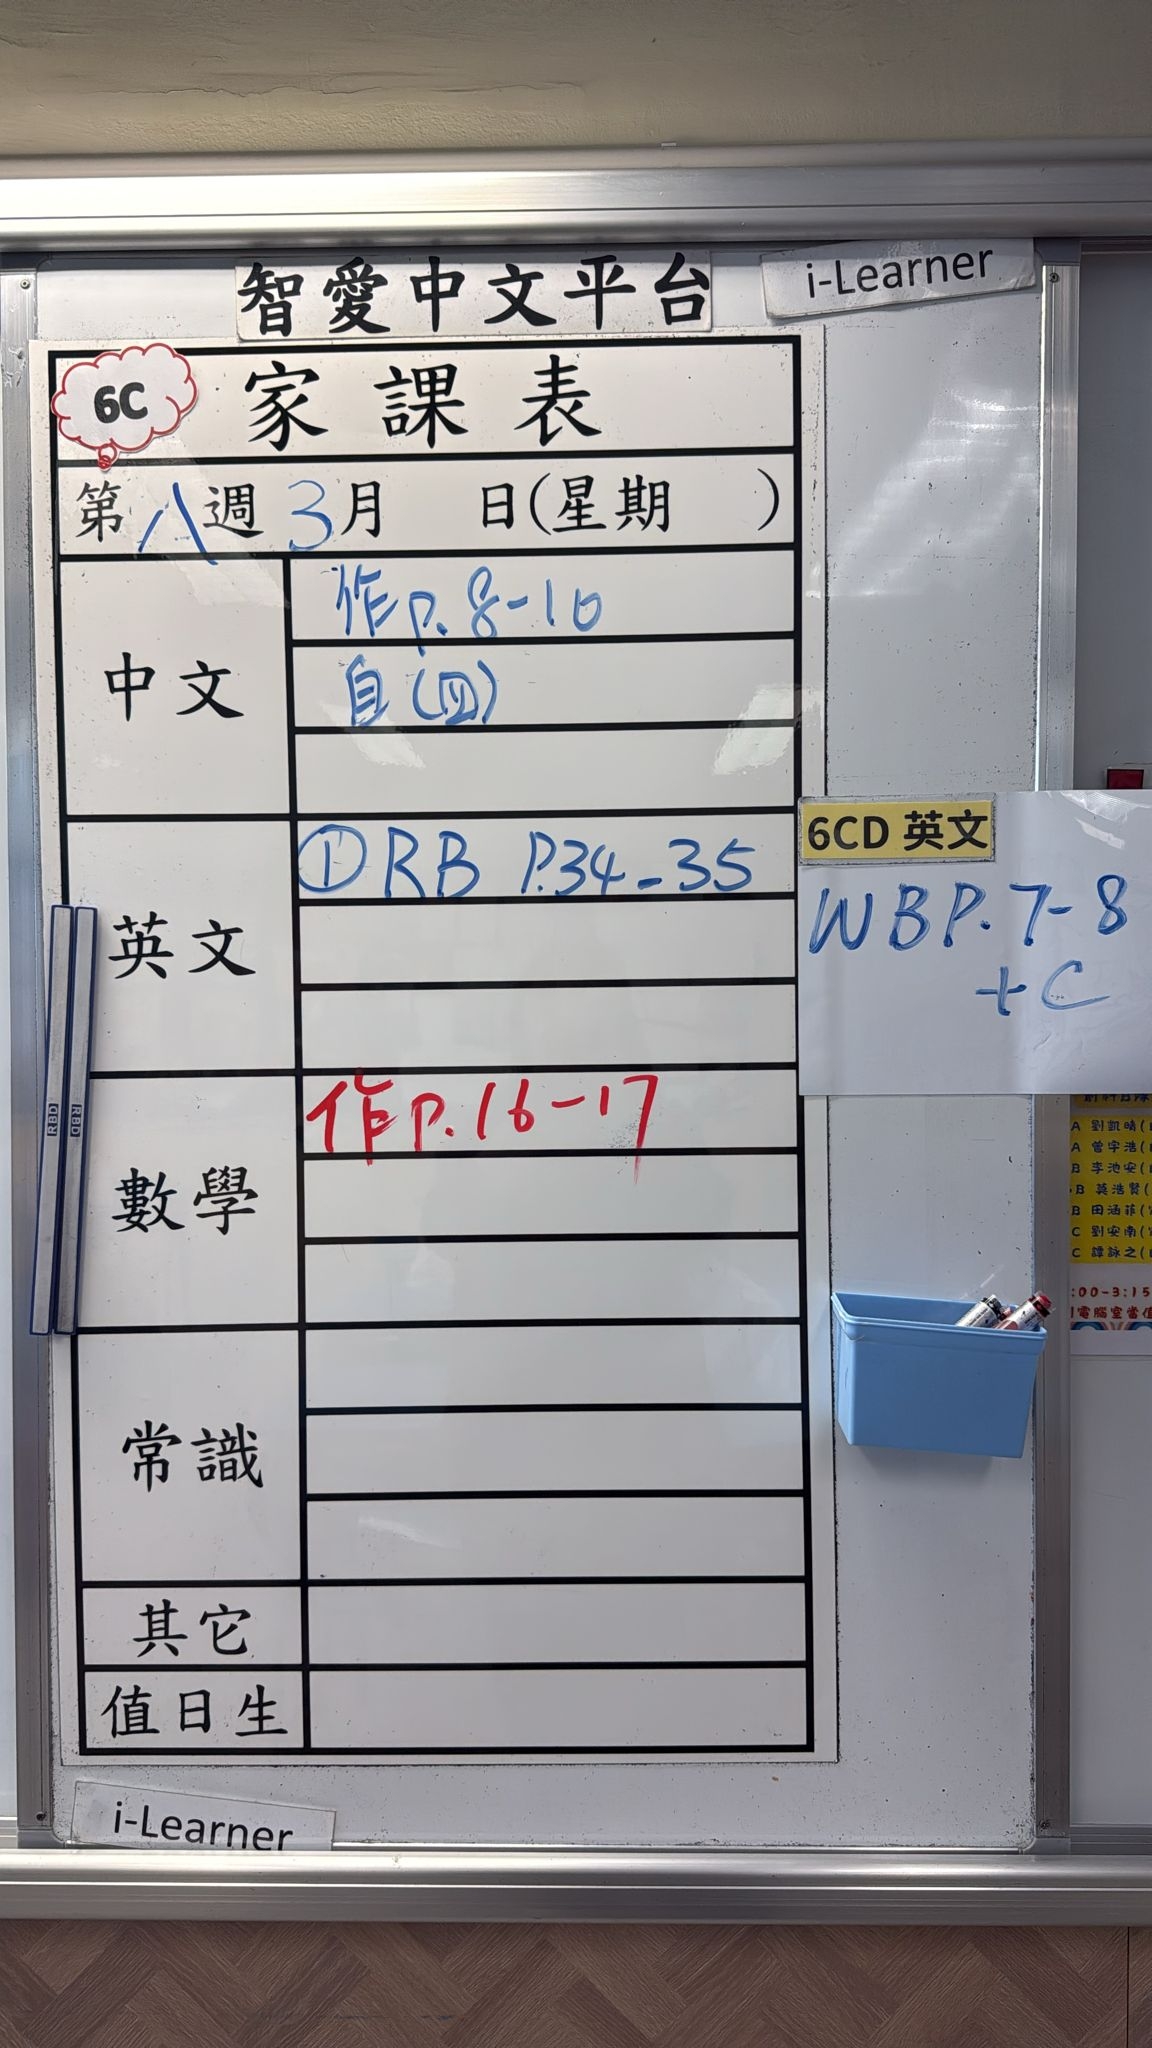 智愛中文平台
i-Learner
6C
家課表
第八週3月 日(星期 )
中文
作p.8-10
自(四)
英文
①RB P.34-35
6CD 英文
WBP.7-8
+C
數學
作p.16-17
RBD
RBD
A 劉凱晴(
A 曾宇浩(
B 李池安(
B 莫浩賢(
B 田涵菲(
C 劉安南(
C 譚詠之(
:00-3:15
電腦室當值
常識
其它
值日生
i-Learner